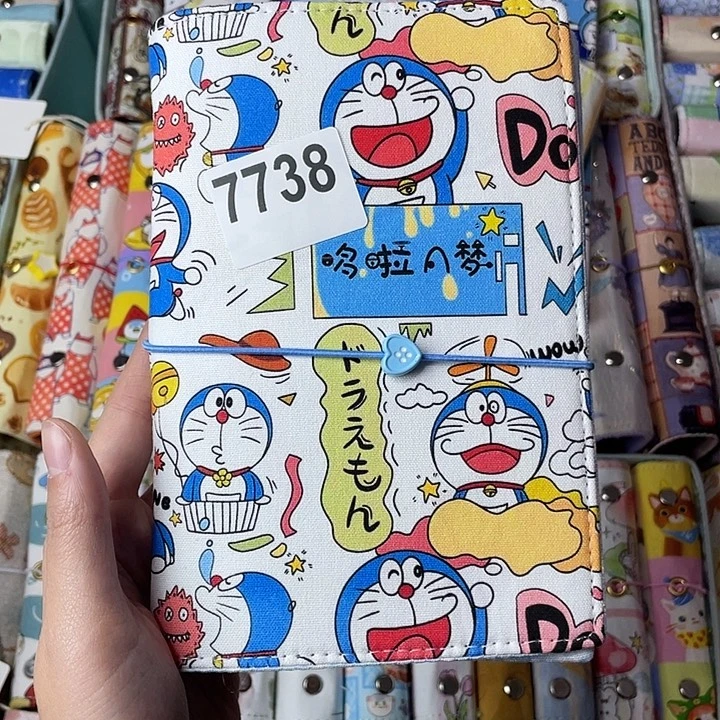 ん
Do
7738
哆啦A梦
wow
ドラえもん
Do